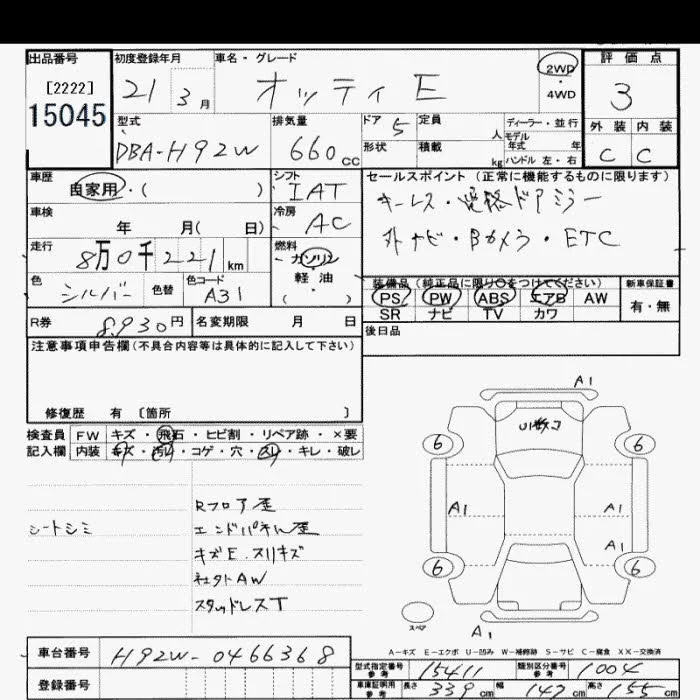 出品番号 初度登録年月 車名・グレード 2WD 評価点
[2222] 21 3月 オッティ E ・ 3
15045 4WD
型式 排気量 ドア 5 定員 人 ディーラー・並行 外装 内装
DBA-H92W 660cc 形状 積載 kg モデル年式 年式 C C
ハンドル 左・右
車歴 自家用・( ) シフト IAT セールスポイント(正常に機能するものに限ります)
車検 年 月( 日) 冷房 AC キーレス・電格ドアミラー
走行 8万0千221km 燃料 ガソリン・軽油・( ) 外ナビ・Bカメラ・ETC
色 シルバー 色替 色コード A31 装備品(純正品に限り○をつけてください) 新車保証書
PS PW ABS エアB AW 有・無
R券 8,930円 名変期限 月 日 SR ナビ TV カワ
注意事項申告欄(不具合内容等は具体的に記入して下さい) 後日品
修復歴 有 〔箇所 〕
検査員 FW キズ・飛石・ヒビ割・リペア跡・×要
記入欄 内装 キズ・汚れ・コゲ・穴・スレ・キレ・破レ
シートシミ
Rフロア歪
エンドパネル歪
キズE.スリキズ
社外AW
スタッドレスT
A1
6 6
A1 A1
A1
6 6
スペア
A1
A-キズ E-エクボ U-凹み W-補修跡 S-サビ C-腐食 XX-交換済
車台番号 H92W-0466368 型式指定番号 参考 15411 類別区分番号 参考 1004
登録番号 車庫証明用 参考 長さ 339cm 幅 147cm 高さ 155cm